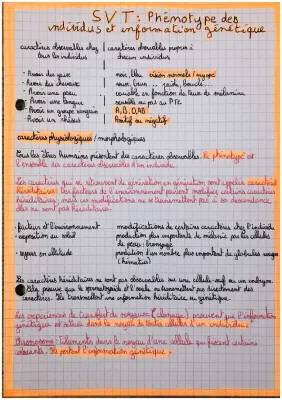 SVT : Phénotype des
individus et information génétique
caractères observables chez tous les individus
caractères observables propres à chacun individus
- Avoir des yeux
noir, bleu vision normale / myope
- Avoir une peau
variable en fonction du taux de mélanine
- Avoir une langue
sensible ou pas au PTC
- Avoir un groupe sanguin
A, B, O, AB
- Avoir un rhésus
Positif ou négatif
caractères physiologiques / morphologiques
Tous les êtres humains présentent des caractères observables. Le phénotype est
l'ensemble des caractères observables d'un individu.
Les caractères qui se retrouvent de génération en génération sont appelés caractères
héréditaires. Les facteurs de l'environnement peuvent modifier certains caractères
héréditaires, mais ces modifications ne se transmettent pas à la descendance
elles ne sont pas héréditaires.
- facteurs de l'environnement
modifications de certains caractères chez l'individu
- exposition au soleil
production plus importante de mélanine par les cellules
de peau : bronzage
- séjours en altitude
production d'un nombre plus important de globules rouges
(hématies)
Les caractères héréditaires ne sont pas observables sur une cellule-œuf ou un embryon.
caractères. Ils transmettent une information héréditaire ou génétique.
Les expériences de transfert de noyaux (clonage) prouvent que l'information
génétique est située dans le noyau de toutes cellules d'un individu.
Chromosome : Éléments dans le noyau d'une cellule qui fixent certains
colorants. Ils portent l'information génétique.